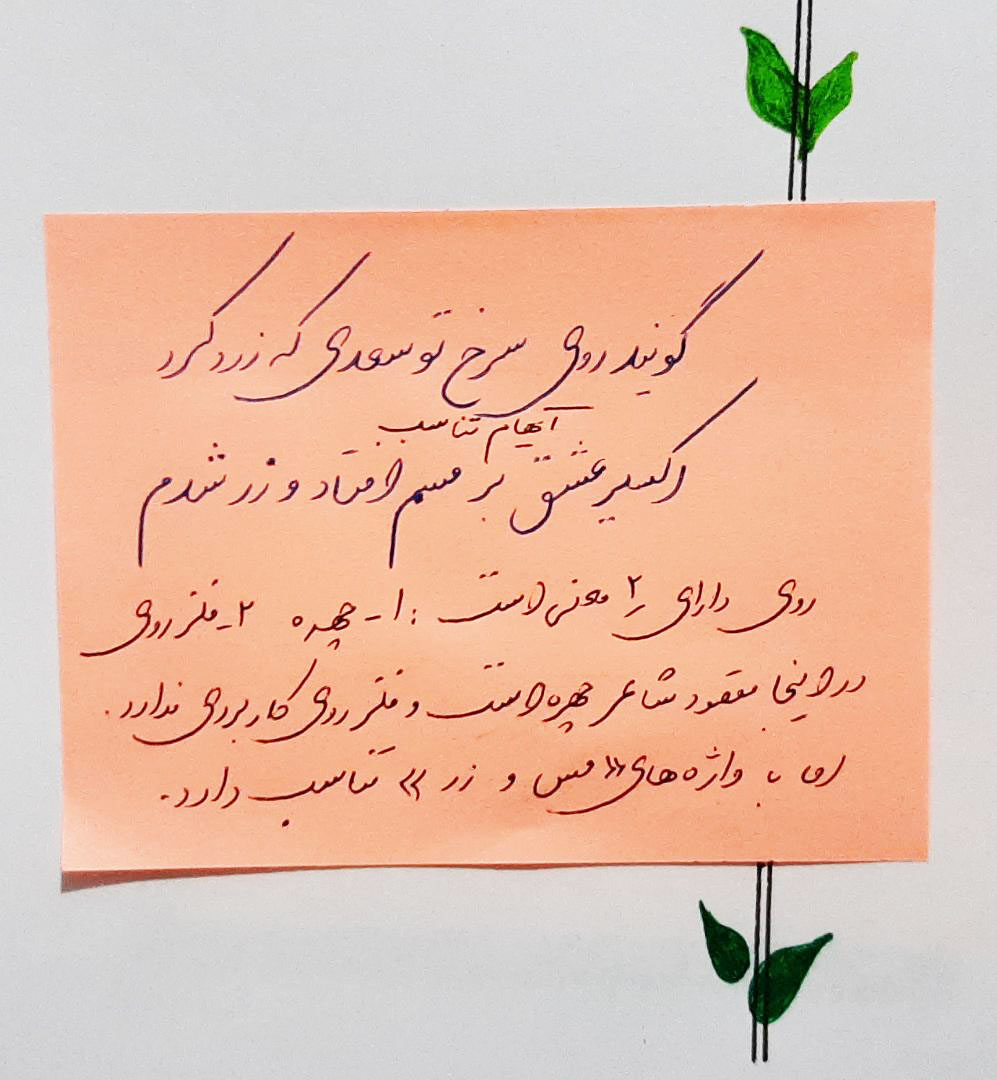 گویند روی سرخ تو سعدی که زرد کرد
ایهام تناسب
اکسیر عشق بر مسم افتاد و زر شدم
روی دارای ۲ معنی است : ۱- چهره ۲- فلز روی
در اینجا مقصود شاعر چهره است و فلز روی کاربردی ندارد.
اما با واژه های «مس و زر» تناسب دارد.